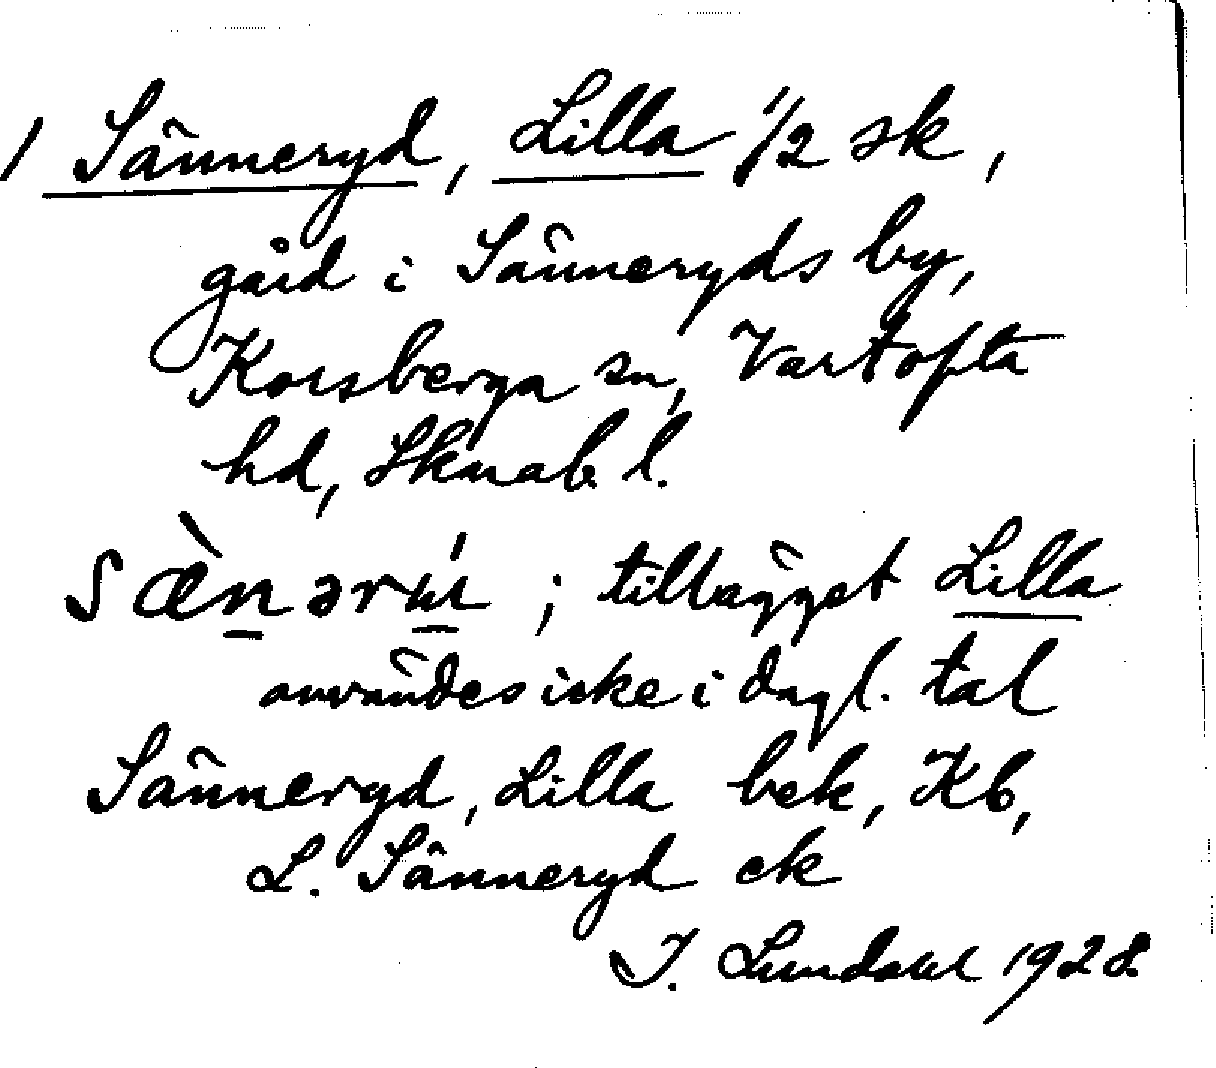 1 Sänneryd, Lilla 1/2 sk,
gård i Sänneryds by,
Korsberga sn, Vartofta
hd, Skarab. l.
; tillägget Lilla
användes icke i dagl. tal
Sänneryd, Lilla bek, Kb,
L. Sänneryd ek
I. Lundahl 1928